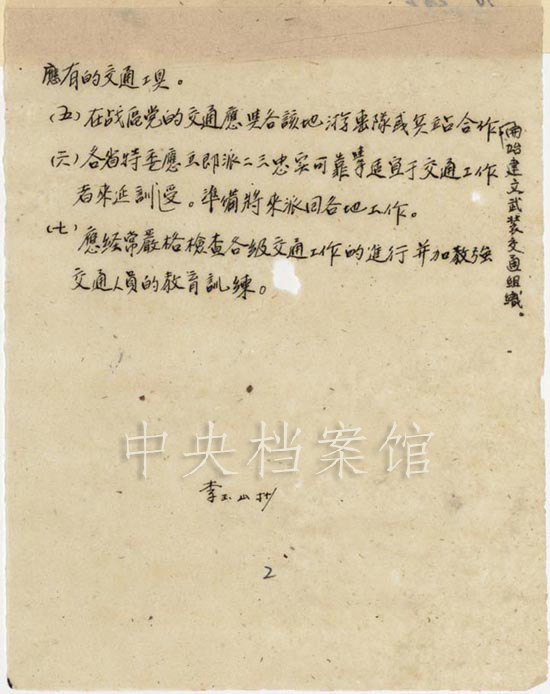 應有的交通工具。
(五)在战區党的交通應與各該地游击隊或兵站合作
開始建立武装交通組織。
(六)各省特委應立即派二三忠实可靠適宜于交通工作
者來延訓受。準備將來派回各地工作。
(七)應经常嚴格檢查各級交通工作的進行并加強
交通人員的教育訓練。
中央档案馆
李玉山抄
2